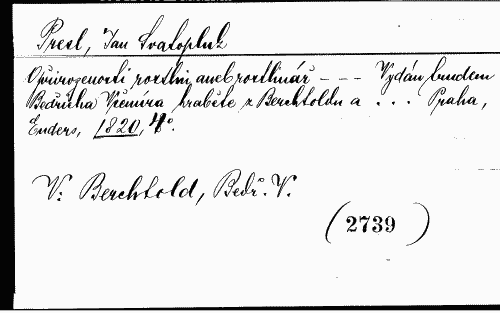 Presl, Jan Svatopluk
O přirozenosti rostlin aneb rostlinář - - - Vydán trudem
Bedřicha Všemíra hraběte z Berchtoldu a . . . Praha,
Enders, 1820, 4°.
V: Berchtold, Bedř. V.
(2739)